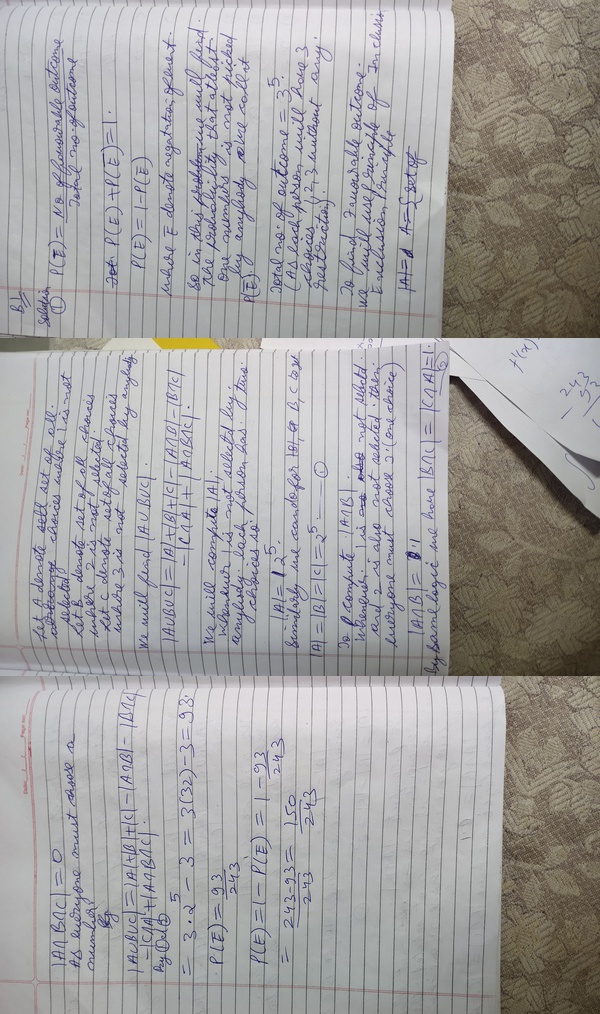 |A∩B∩C| = 0
As everyone must choose a
number.
|A∪B∪C| = |A|+|B|+|C| - |A∩B| - |B∩C|
- |C∩A| + |A∩B∩C|.
By ① & ②
= 3·2⁵ - 3 = 3(32)-3 = 93.
P(E) = 93/243
P(E) = 1 - P(E) = 1 - 93/243
= 243-93/243 = 150/243
Let A denote set of all
choices where 1 is not
selected
Let B denote set of all choices
where 2 is not selected
Let C denote set of all choices
where 3 is not selected by anybody.
We will find |A∪B∪C|.
|A∪B∪C| = |A|+|B|+|C| - |A∩B| - |B∩C|
- |C∩A| + |A∩B∩C|.
We will compute |A|.
Whenever 1 is not selectd by
anybody. each person has two
choices so
|A| = 2⁵.
Similarly we can do for B, C to get
|A| = |B| = |C| = 2⁵ —— ①
To compute |A∩B|.
Whenever 1 is not selected.
and 2 is also not selected then
everyone must choose 3 (one choice)
|A∩B| = 1
By Same logic we have |B∩C| = |C∩A| = 1.
②
f'(x)
1 243
B1
Solution
① P(E̅) = No of favourable outcome / Total no. of outcome
P(E) + P(E̅) = 1.
P(E) = 1 - P(E̅)
where E̅ denote negatation of event.
So in this problem we will find
the probability that atleast
one numbers is not picked
by anybody we call it
P(E̅).
Total no. of outcome = 3⁵.
(As each person will have 3
choices 1,2,3 without any
restriction).
To find Favourable outcome.
We will use Principle of Inclusis
Exclusion Principle
|A| = A = { set of